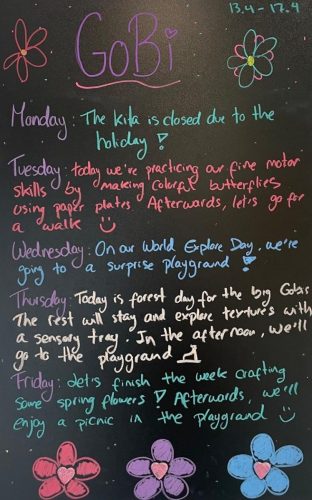 13.4 - 17.4
GoBi
Monday: The kita is closed due to the
holiday!
Tuesday: today we're practicing our fine motor
skills by making colorful butterflies
using paper plates. Afterwards, let's go for
a walk
Wednesday: On our World Explore Day, we're
going to a surprise playground!
Thursday: Today is forest day for the big Gobis
The rest will stay and explore textures with
a sensory tray. In the afternoon, we'll
go to the playground
Friday: let's finish the week crafting
some spring flowers! Afterwords, we'll
enjoy a picnic in the playground